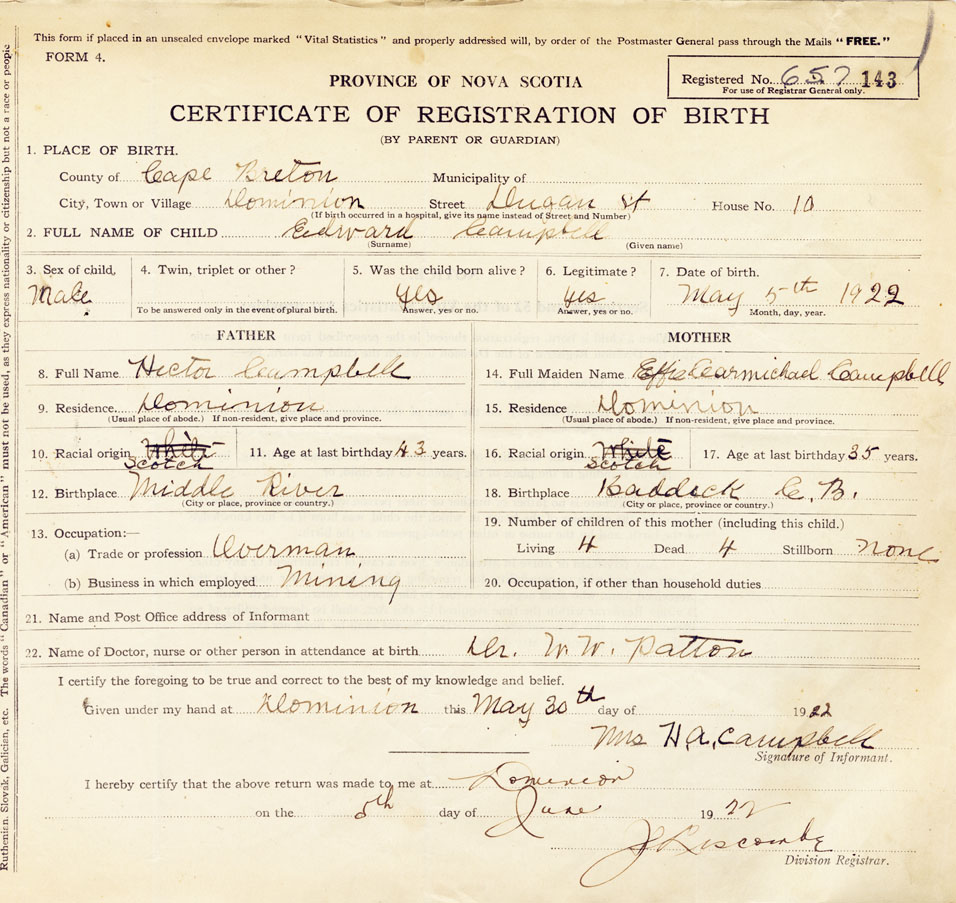 This form if placed in an unsealed envelope marked "Vital Statistics" and properly addressed will, by order of the Postmaster General pass through the Mails "FREE."
FORM 4.
PROVINCE OF NOVA SCOTIA
Registered No. 657 143
For use of Registrar General only.
CERTIFICATE OF REGISTRATION OF BIRTH
(BY PARENT OR GUARDIAN)
1. PLACE OF BIRTH.
County of Cape Breton Municipality of
City, Town or Village Dominion Street Dugan st House No. 10
(If birth occurred in a hospital, give its name instead of Street and Number)
2. FULL NAME OF CHILD Edward Campbell
(Surname) (Given name)
3. Sex of child, 4. Twin, triplet or other? 5. Was the child born alive? 6. Legitimate? 7. Date of birth.
Male yes yes May 5th 1922
To be answered only in the event of plural birth. Answer, yes or no. Answer, yes or no. Month, day, year.
FATHER MOTHER
8. Full Name Hector Campbell 14. Full Maiden Name Effie Carmichael Campbell
9. Residence Dominion 15. Residence Dominion
(Usual place of abode.) If non-resident, give place and province. (Usual place of abode.) If non-resident, give place and province.
10. Racial origin White 11. Age at last birthday 43 years. 16. Racial origin White 17. Age at last birthday 35 years.
Scotch Scotch
12. Birthplace Middle River 18. Birthplace Baddeck C. B.
(City or place, province or country.) (City or place, province or country.)
13. Occupation:— 19. Number of children of this mother (including this child.)
(a) Trade or profession Overman Living 4 Dead 4 Stillborn None
(b) Business in which employed Mining 20. Occupation, if other than household duties
21. Name and Post Office address of Informant
22. Name of Doctor, nurse or other person in attendance at birth Dr. W. W. Patton
I certify the foregoing to be true and correct to the best of my knowledge and belief.
Given under my hand at Dominion this May 30th day of 1922
Mrs H.A. Campbell
Signature of Informant.
I hereby certify that the above return was made to me at Dominion
on the 5th day of June 1922
J Liscombe
Division Registrar.
Ruthenian, Slovak, Galician, etc. The words "Canadian" or "American" must not be used, as they express nationality or citizenship but not a race or people